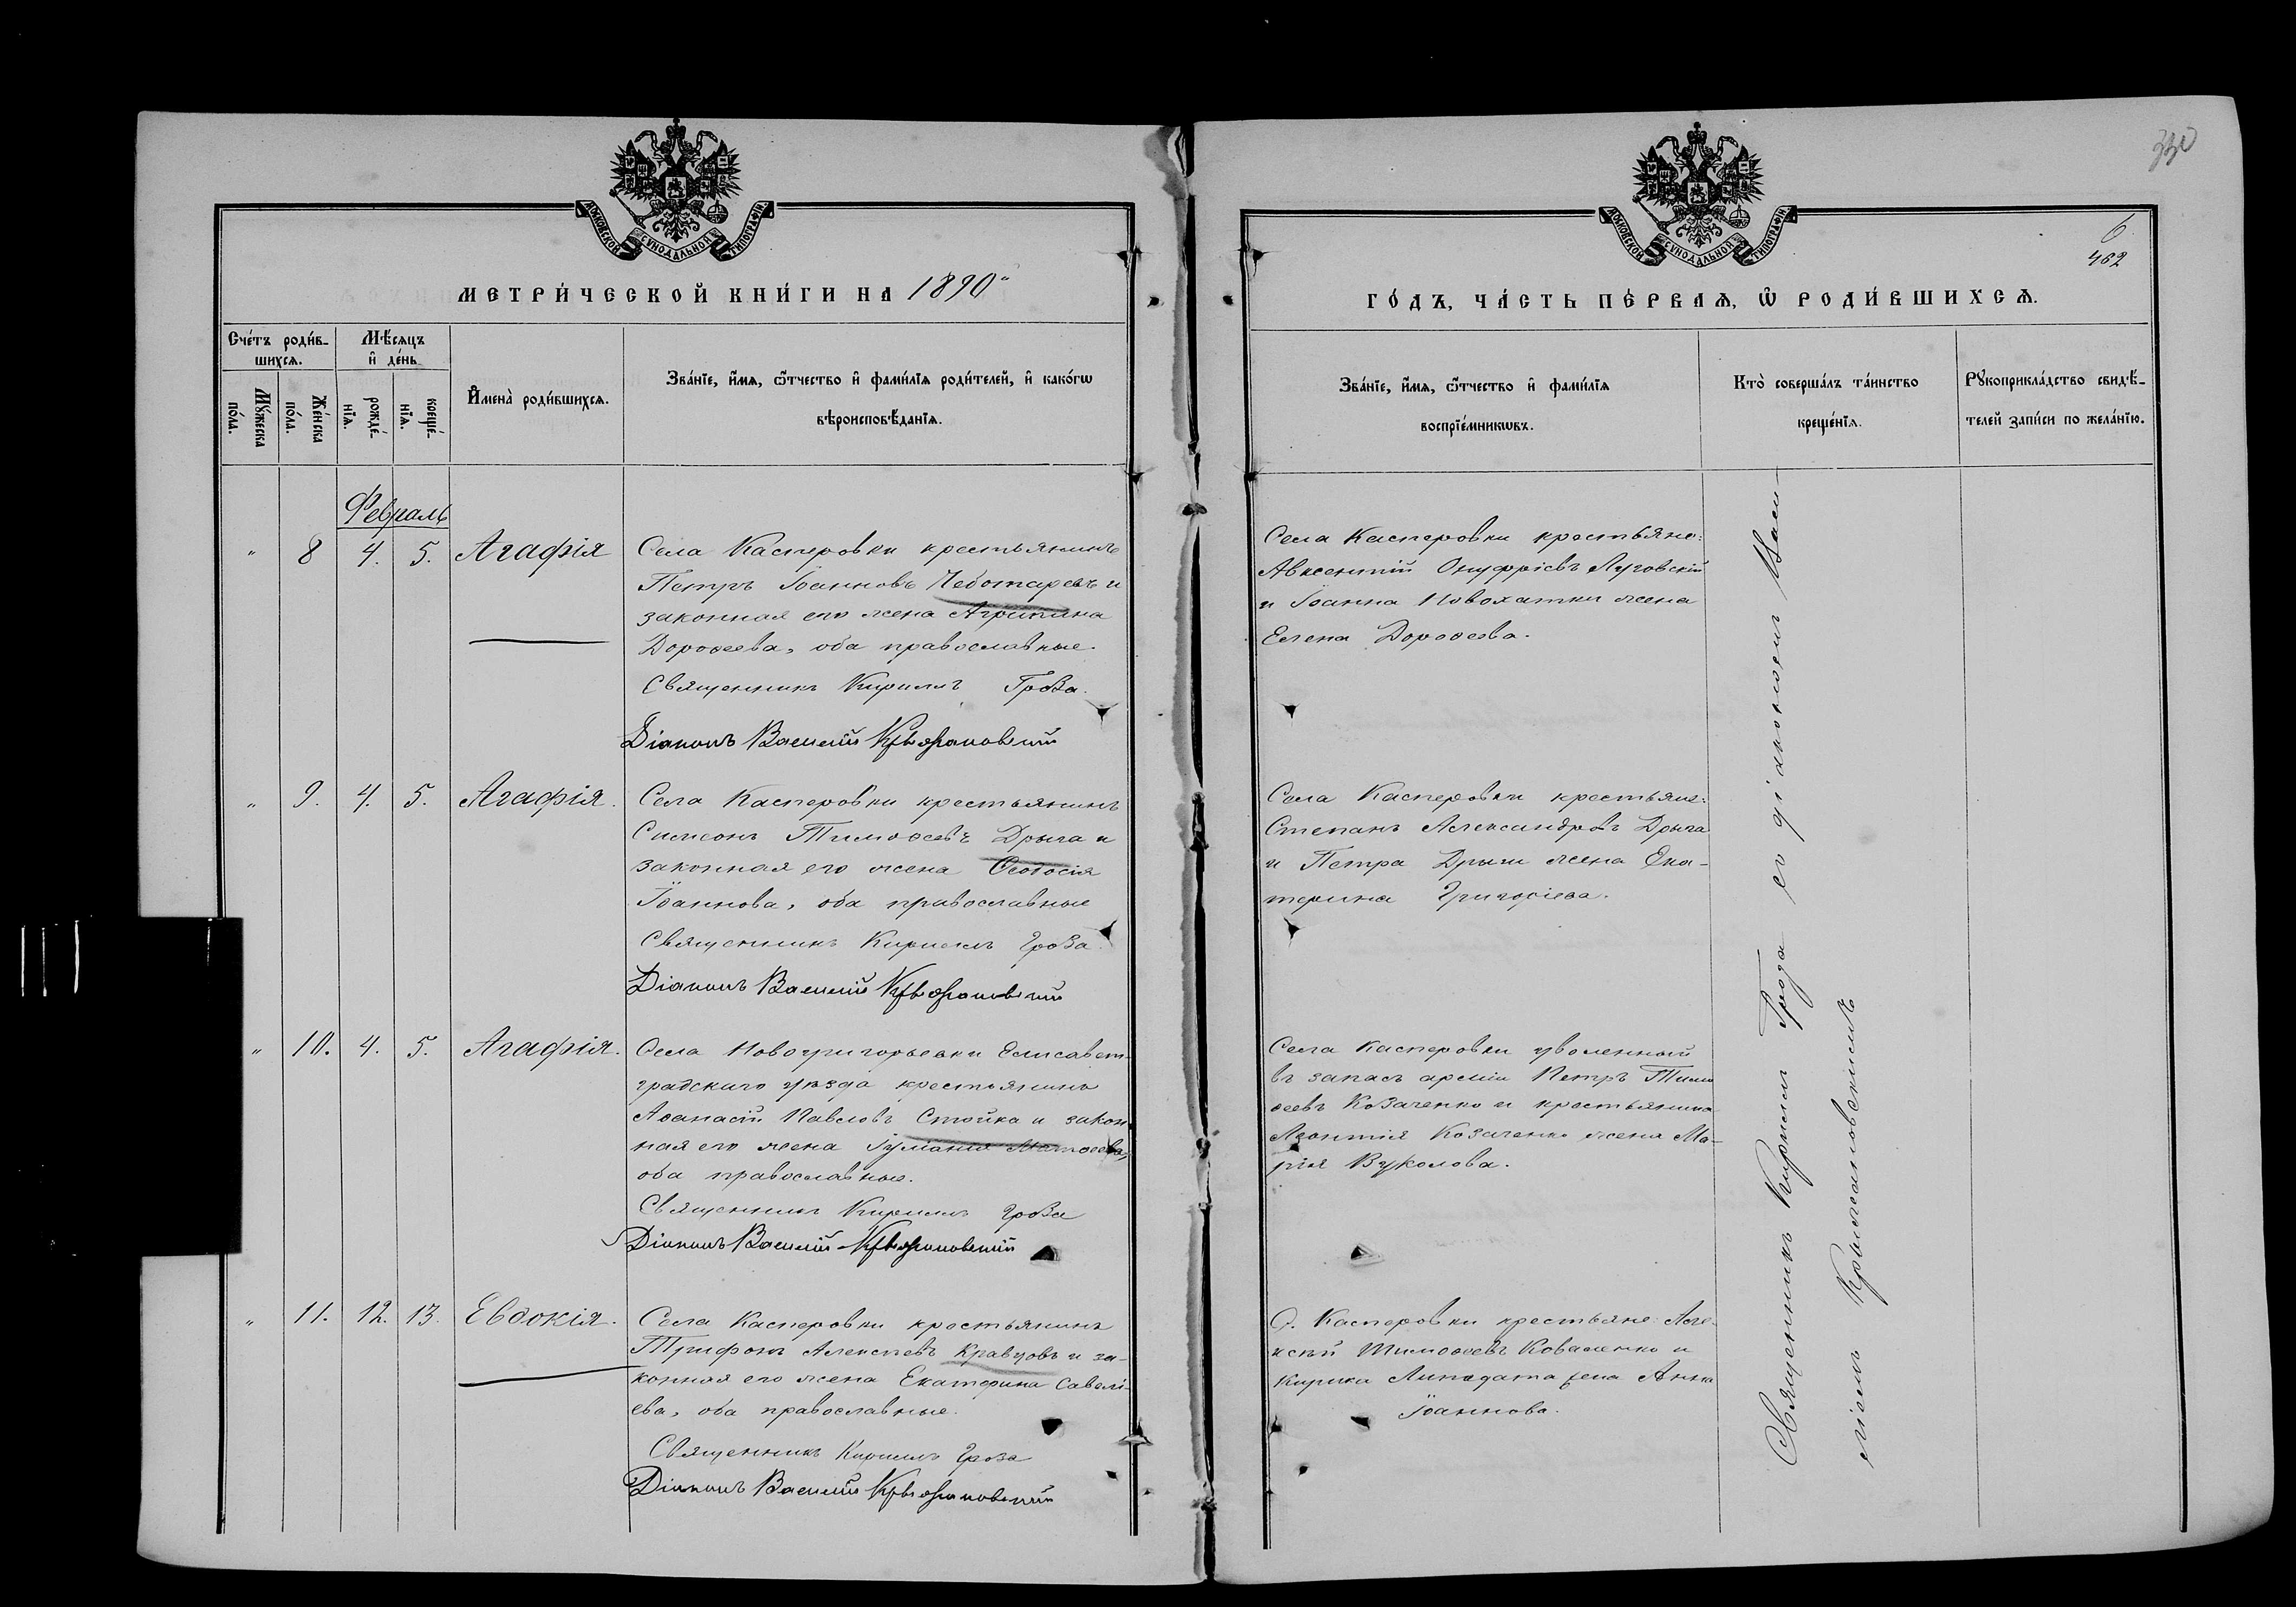 330
МОСКОВСКОЙ СѴНОДАЛЬНОЙ ТИПОГРАФІИ.
МОСКОВСКОЙ СѴНОДАЛЬНОЙ ТИПОГРАФІИ.
6
462
МЕТРИ́ЧЕСКОЙ КНИ́ГИ НА 1890
ГО́ДЪ, ЧА́СТЬ ПЕ́РВАѦ, Ѡ҆ РОДИ́ВШИХСѦ.
Сче́тъ роди́в-
шихсѧ.
Мѣ́сѧцъ
и҆ де́нь
Мꙋ́жеска
по́ла.
Же́нска
по́ла.
рожде́-
нїѧ.
креще́-
нїѧ.
И҆мена̀ роди́вшихсѧ.
Зва́нїе, и҆́мѧ, ѻ҆́тчество и҆ фами́лїѧ роди́телей, и҆ како́гѡ
вѣроисповѣ́данїѧ.
Зва́нїе, и҆́мѧ, ѻ҆́тчество и҆ фами́лїѧ
воспрїе́мникѡвъ.
Кто̀ соверша́лъ та́инство
креще́нїѧ.
Рꙋкоприкла́дство свидѣ́-
телей за́писи по жела́нїю.
Февраль
" 8 4. 5. Агафія
Села Касперовки крестьянинъ
Петръ Іоанновъ Чеботаревъ и
законная его жена Агрипина
Дороѳеева, оба православные.
Священникъ Кириллъ Гроза.
Діаконъ Василій Крыжановскій
Села Касперовки крестьяне:
Авксентій Онуфріевъ Луговскій
и Іоанна Новохатки жена
Елена Дороѳеева.
" 9. 4. 5. Агафія.
Села Касперовки крестьянинъ
Симеонъ Тимоѳеевъ Дрыга и
законная его жена Ѳеодосія
Іоаннова, оба православные
Священникъ Кириллъ Гроза.
Діаконъ Василій Крыжановскій
Села Касперовки крестьяне:
Степанъ Александровъ Дрыга
и Петра Дрыги жена Ека-
терина Григоріева.
" 10. 4. 5. Агафія.
Села Новогригорьевки Елисавет-
градскаго уѣзда крестьянинъ
Аѳанасій Павловъ Стойка и закон
ная его жена Іуліанія
оба православные.
Священникъ Кириллъ Гроза
Діаконъ Василій Крыжановскій
Села Касперовки уволенный
въ запасъ арміи Петръ Тимо
ѳеевъ Козаченко и крестьянина
Леонтія Козаченко жена Ма-
рія Вуколова.
" 11. 12. 13. Евдокія.
Села Касперовки крестьянинъ
Трифонъ Алексѣевъ Кравцовъ и за-
конная его жена Екатерина Савелі-
ева, оба православные.
Священникъ Кириллъ Гроза
Діаконъ Василій Крыжановскій
С. Касперовки крестьяне: Але-
ксѣй Тимоѳеевъ Коваленко и
Кирика жена Анна
Іоаннова.
Священникъ Кирилъ Гроза съ діакономъ Васи-
ліемъ Крыжановскимъ